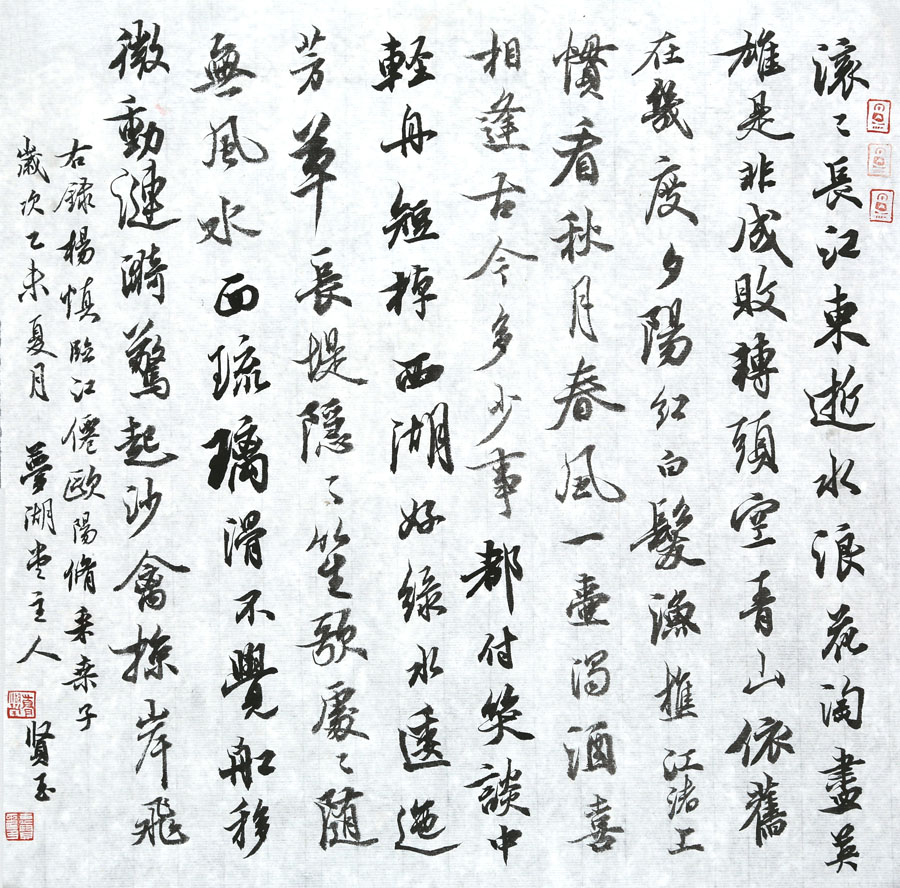 滚〻長江東逝水浪花淘盡英
雄是非成敗轉頭空青山依舊
在幾度夕陽紅白髮漁樵江渚上
慣看秋月春風一壺濁酒喜
相逢古今多少事都付笑談中
輕舟短棹西湖好綠水逶迤
芳草長堤隱〻笙歌處〻随
無風水面琉璃滑不覺船移
微動漣漪驚起沙禽掠岸飛
右録楊慎臨江僊歐陽脩采桑子
歲次乙未夏月夢湖堂主人賢玉